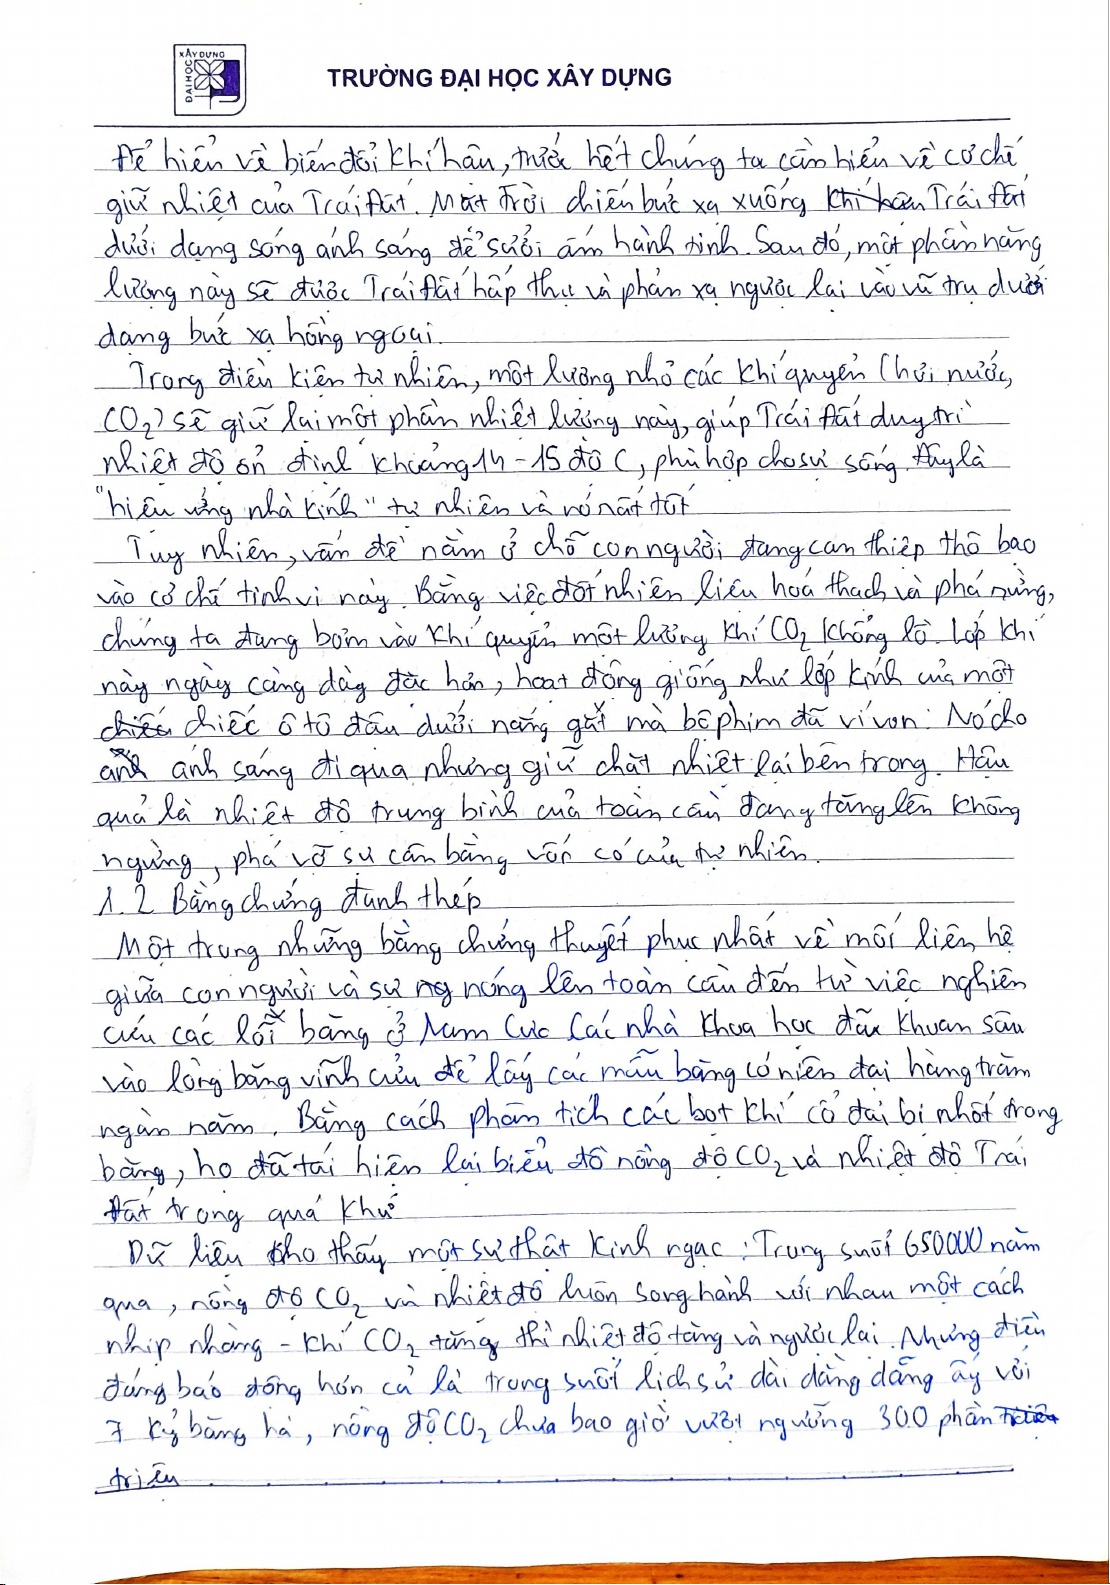 XÂY DỰNG
ĐẠI HỌC
TRƯỜNG ĐẠI HỌC XÂY DỰNG
Để hiển về biến đổi khí hậu, trước hết chúng ta cần hiển về cơ chế
giữ nhiệt của Trái Đất. Mặt Trời chiến bức xạ xuống khí hậu Trái Đất
dưới dạng sóng ánh sáng để sưởi ấm hành tinh. Sau đó, một phần năng
lượng này sẽ được Trái Đất hấp thụ và phản xạ ngược lại vào vũ trụ dưới
dạng bức xạ hồng ngoại.
Trong điều kiện tự nhiên, một lượng nhỏ các khí quyển (hơi nước,
CO2) sẽ giữ lại một phần nhiệt lượng này, giúp Trái Đất duy trì
nhiệt độ ổn định khoảng 14 - 15 độ C, phù hợp cho sự sống. Đây là
"hiệu ứng nhà kính" tự nhiên và nó rất tốt
Tuy nhiên, vấn đề nằm ở chỗ con người đang can thiệp thô bạo
vào cơ chế tinh vi này. Bằng việc đốt nhiên liệu hoá thạch và phá rừng,
chúng ta đang bơm vào khí quyển một lượng khí CO2 khổng lồ. Lớp khí
này ngày càng dày đặc hơn, hoạt động giống như lớp kính của một
chiếc chiếc ô tô đậu dưới nắng gắt mà bộ phim đã ví von: Nó cho
ánh ánh sáng đi qua nhưng giữ chặt nhiệt lại bên trong. Hậu
quả là nhiệt độ trung bình của toàn cầu đang tăng lên không
ngừng, phá vỡ sự cân bằng vốn có của tự nhiên.
1.2 Bằng chứng đanh thép
Một trong những bằng chứng thuyết phục nhất về mối liên hệ
giữa con người và sự ng nóng lên toàn cầu đến từ việc nghiên
cứu các lõi băng ở Nam Cực Các nhà khoa học đã khoan sâu
vào lòng băng vĩnh cửu để lấy các mẫu băng có niên đại hàng trăm
ngàn năm. Bằng cách phân tích các bọt khí cổ đại bị nhốt trong
băng, họ đã tái hiện lại biểu đồ nồng độ CO2 và nhiệt độ Trái
Đất trong quá khứ
Dữ liệu cho thấy một sự thật kinh ngạc: Trong suốt 650000 năm
qua, nồng độ CO2 và nhiệt độ luôn song hành với nhau một cách
nhịp nhàng - khí CO2 tăng thì nhiệt độ tăng và ngược lại. Nhưng điều
đáng báo động hơn cả là trong suốt lịch sử dài đằng đẵng ấy với
7 kỷ băng hà, nồng độ CO2 chưa bao giờ vượt ngưỡng 300 phần
triệu